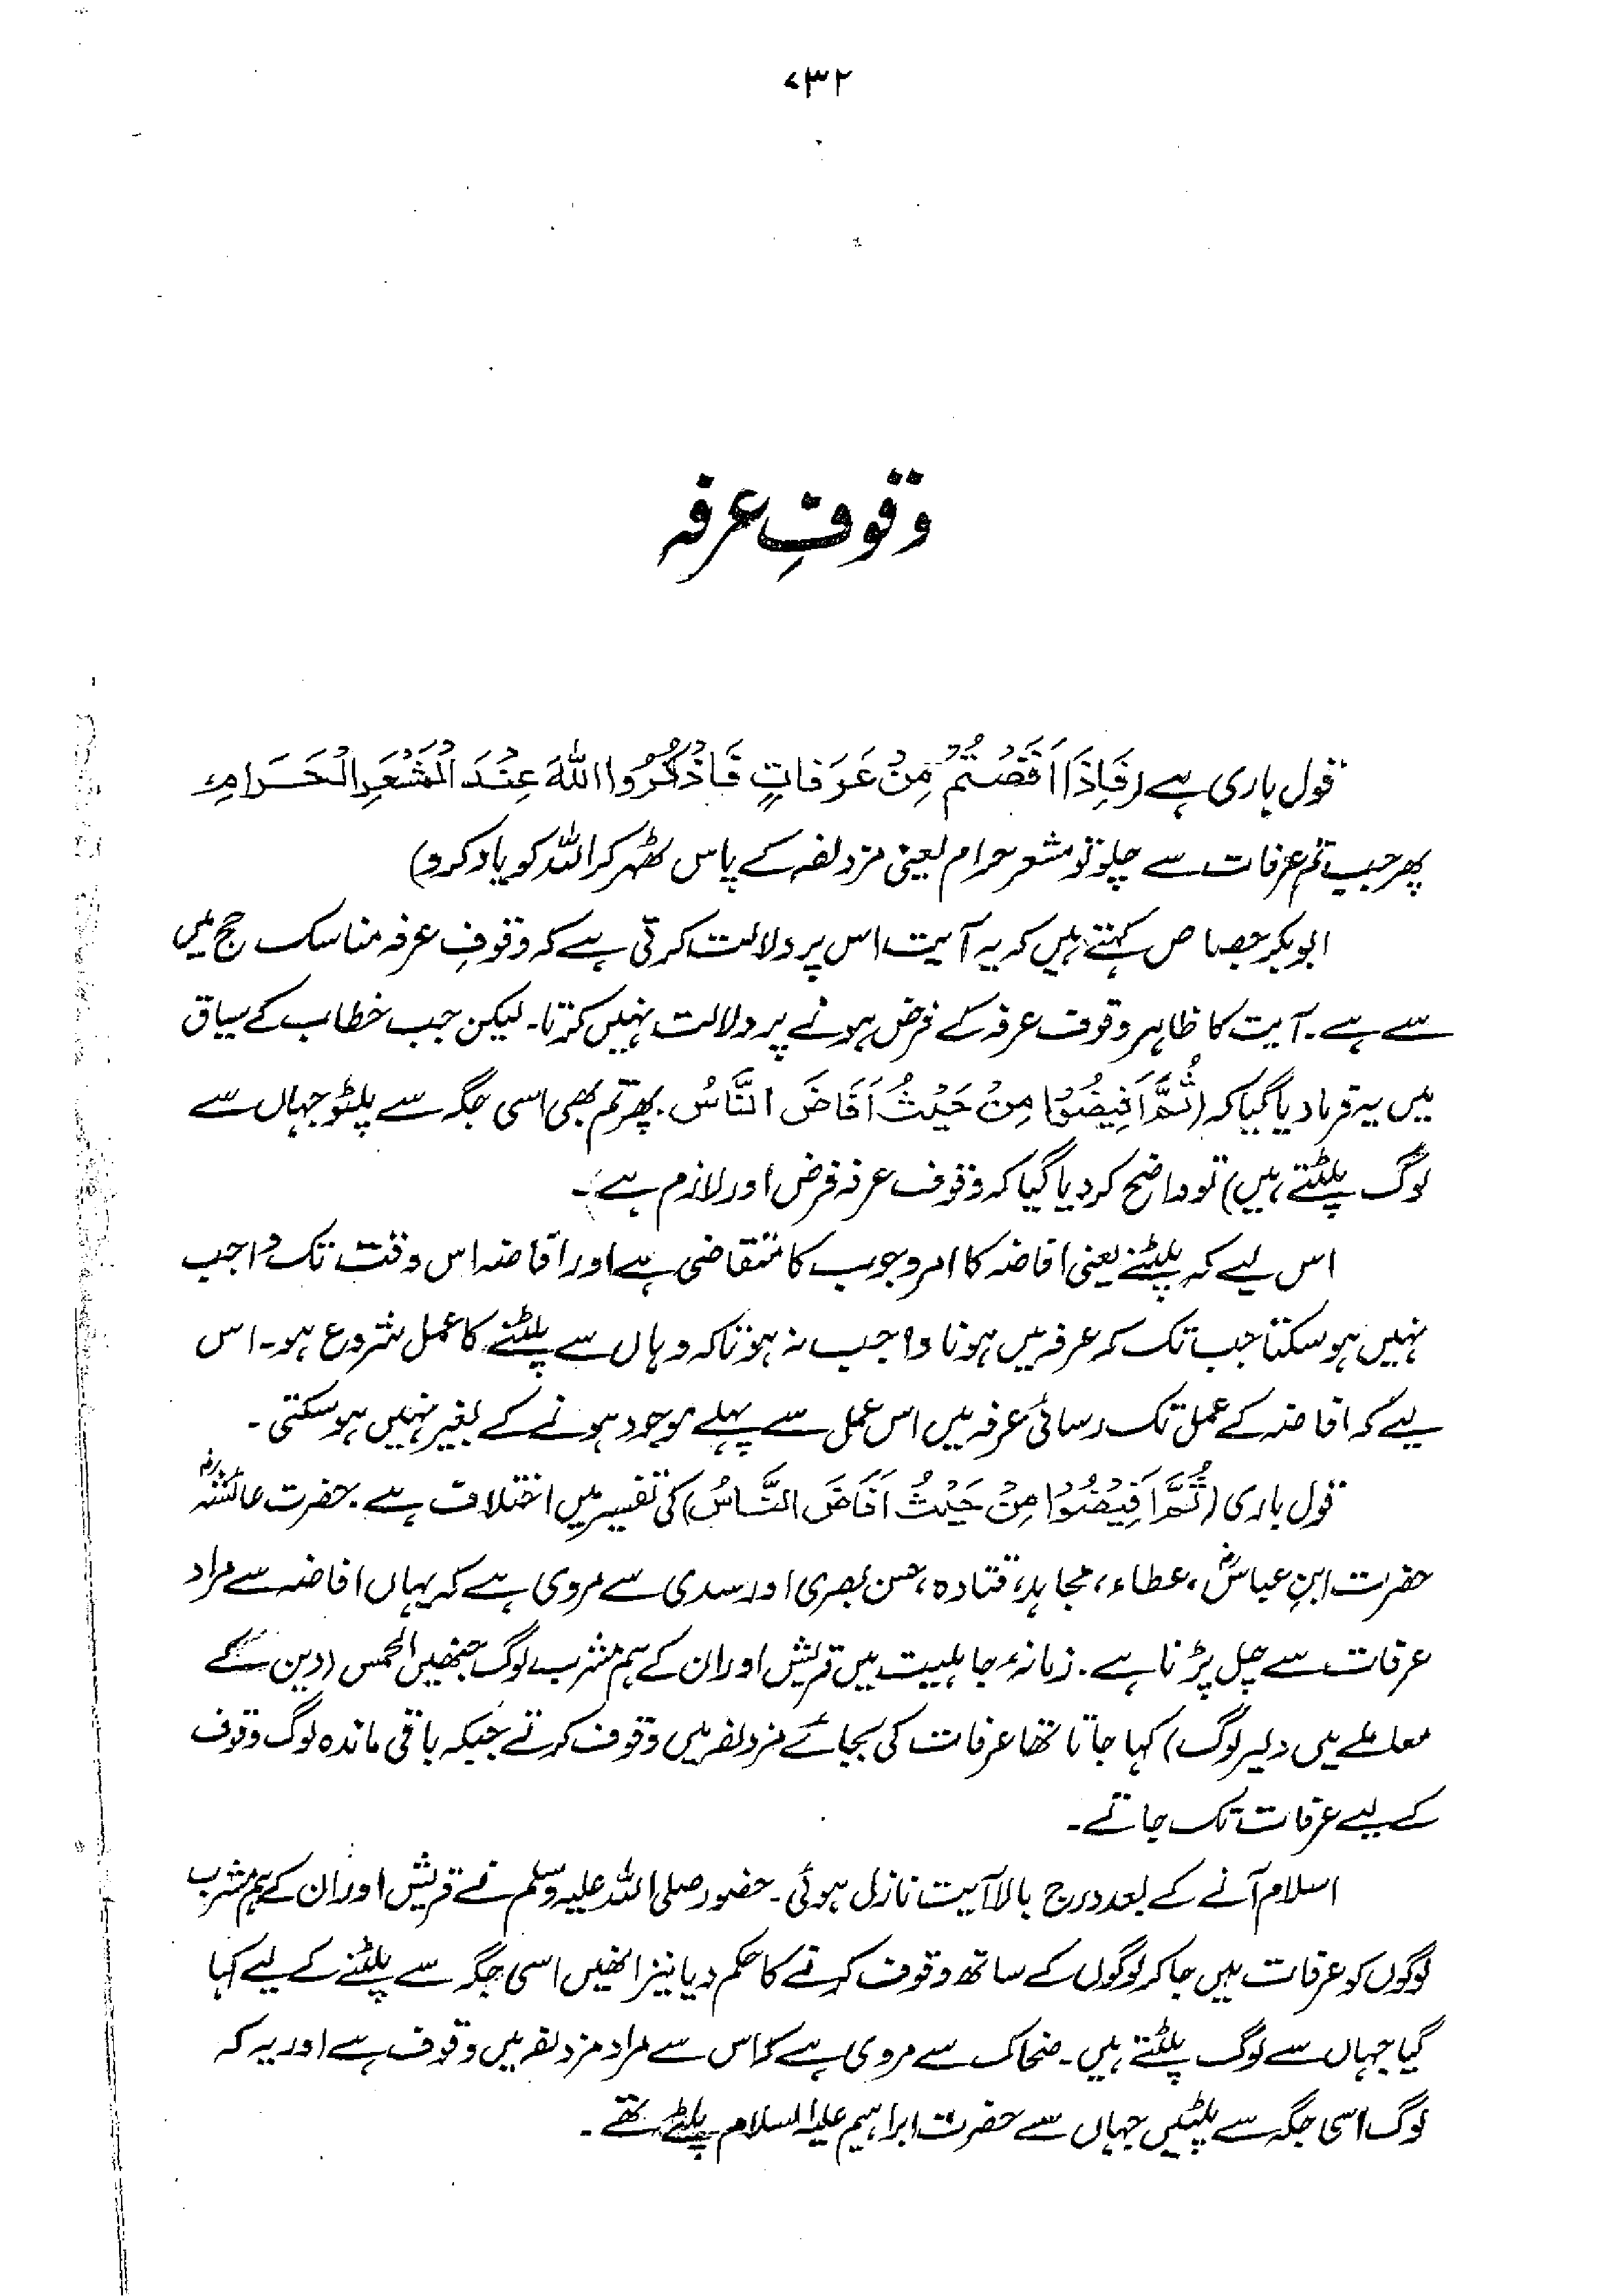 ۷۳۲
وقوفِ عرفہ
قول باری ہے (فَاِذَا اَفَضْتُمْ مِنْ عَرَفَاتٍ فَاذْكُرُوا اللّٰهَ عِنْدَ الْمَشْعَرِ الْحَرَامِ،
پھر جب تم عرفات سے چلو تو مشعر حرام یعنی مزدلفہ کے پاس ٹھہر کر اللہ کو یاد کرو)
ابوبکر جصاص کہتے ہیں کہ یہ آیت اس پر دلالت کرتی ہے کہ وقوفِ عرفہ مناسک حج میں
سے ہے۔ آیت کا ظاہر وقوف عرفہ کے فرض ہونے پر دلالت نہیں کرتا۔ لیکن جب خطاب کے سیاق
میں یہ فرما دیا گیا کہ (ثُمَّ اَفِيْضُوْا مِنْ حَيْثُ اَفَاضَ النَّاسُ۔ پھر تم بھی اسی جگہ سے پلٹو جہاں سے
لوگ پلٹتے ہیں) تو واضح کر دیا گیا کہ وقوف عرفہ فرض اور لازم ہے۔
اس لیے کہ پلٹنے یعنی افاضہ کا امر وجوب کا متقاضی ہے اور افاضہ اس وقت تک واجب
نہیں ہو سکتا جب تک کہ عرفہ میں ہونا واجب نہ ہو تاکہ وہاں سے پلٹنے کا عمل شروع ہو۔ اس
لیے کہ افاضہ کے عمل تک رسائی عرفہ میں اس عمل سے پہلے موجود ہونے کے بغیر نہیں ہو سکتی۔
قول باری (ثُمَّ اَفِيْضُوْا مِنْ حَيْثُ اَفَاضَ النَّاسُ) کی تفسیر میں اختلاف ہے۔ حضرت عائشہؓ
حضرت ابنِ عباسؓ، عطاء، مجاہد، قتادہ، حسن بصری اور سدی سے مروی ہے کہ یہاں افاضہ سے مراد
عرفات سے چل پڑنا ہے۔ زمانۂ جاہلیت میں قریش اور ان کے ہم مشرب لوگ جنھیں الحمس (دین کے
معاملے میں دلیر لوگ) کہا جاتا تھا عرفات کی بجائے مزدلفہ میں وقوف کرتے جبکہ باقی ماندہ لوگ وقوف
کے لیے عرفات تک جاتے۔
اسلام آنے کے بعد درج بالا آیت نازل ہوئی۔ حضور صلی اللہ علیہ وسلم نے قریش اور ان کے ہم مشرب
لوگوں کو عرفات میں جا کر لوگوں کے ساتھ وقوف کرنے کا حکم دیا نیز انھیں اسی جگہ سے پلٹنے کے لیے کہا
گیا جہاں سے لوگ پلٹتے ہیں۔ ضحاک سے مروی ہے کہ اس سے مراد مزدلفہ میں وقوف ہے اور یہ کہ
لوگ اسی جگہ سے پلٹیں جہاں سے حضرت ابراہیم علیہ السلام پلٹے تھے۔